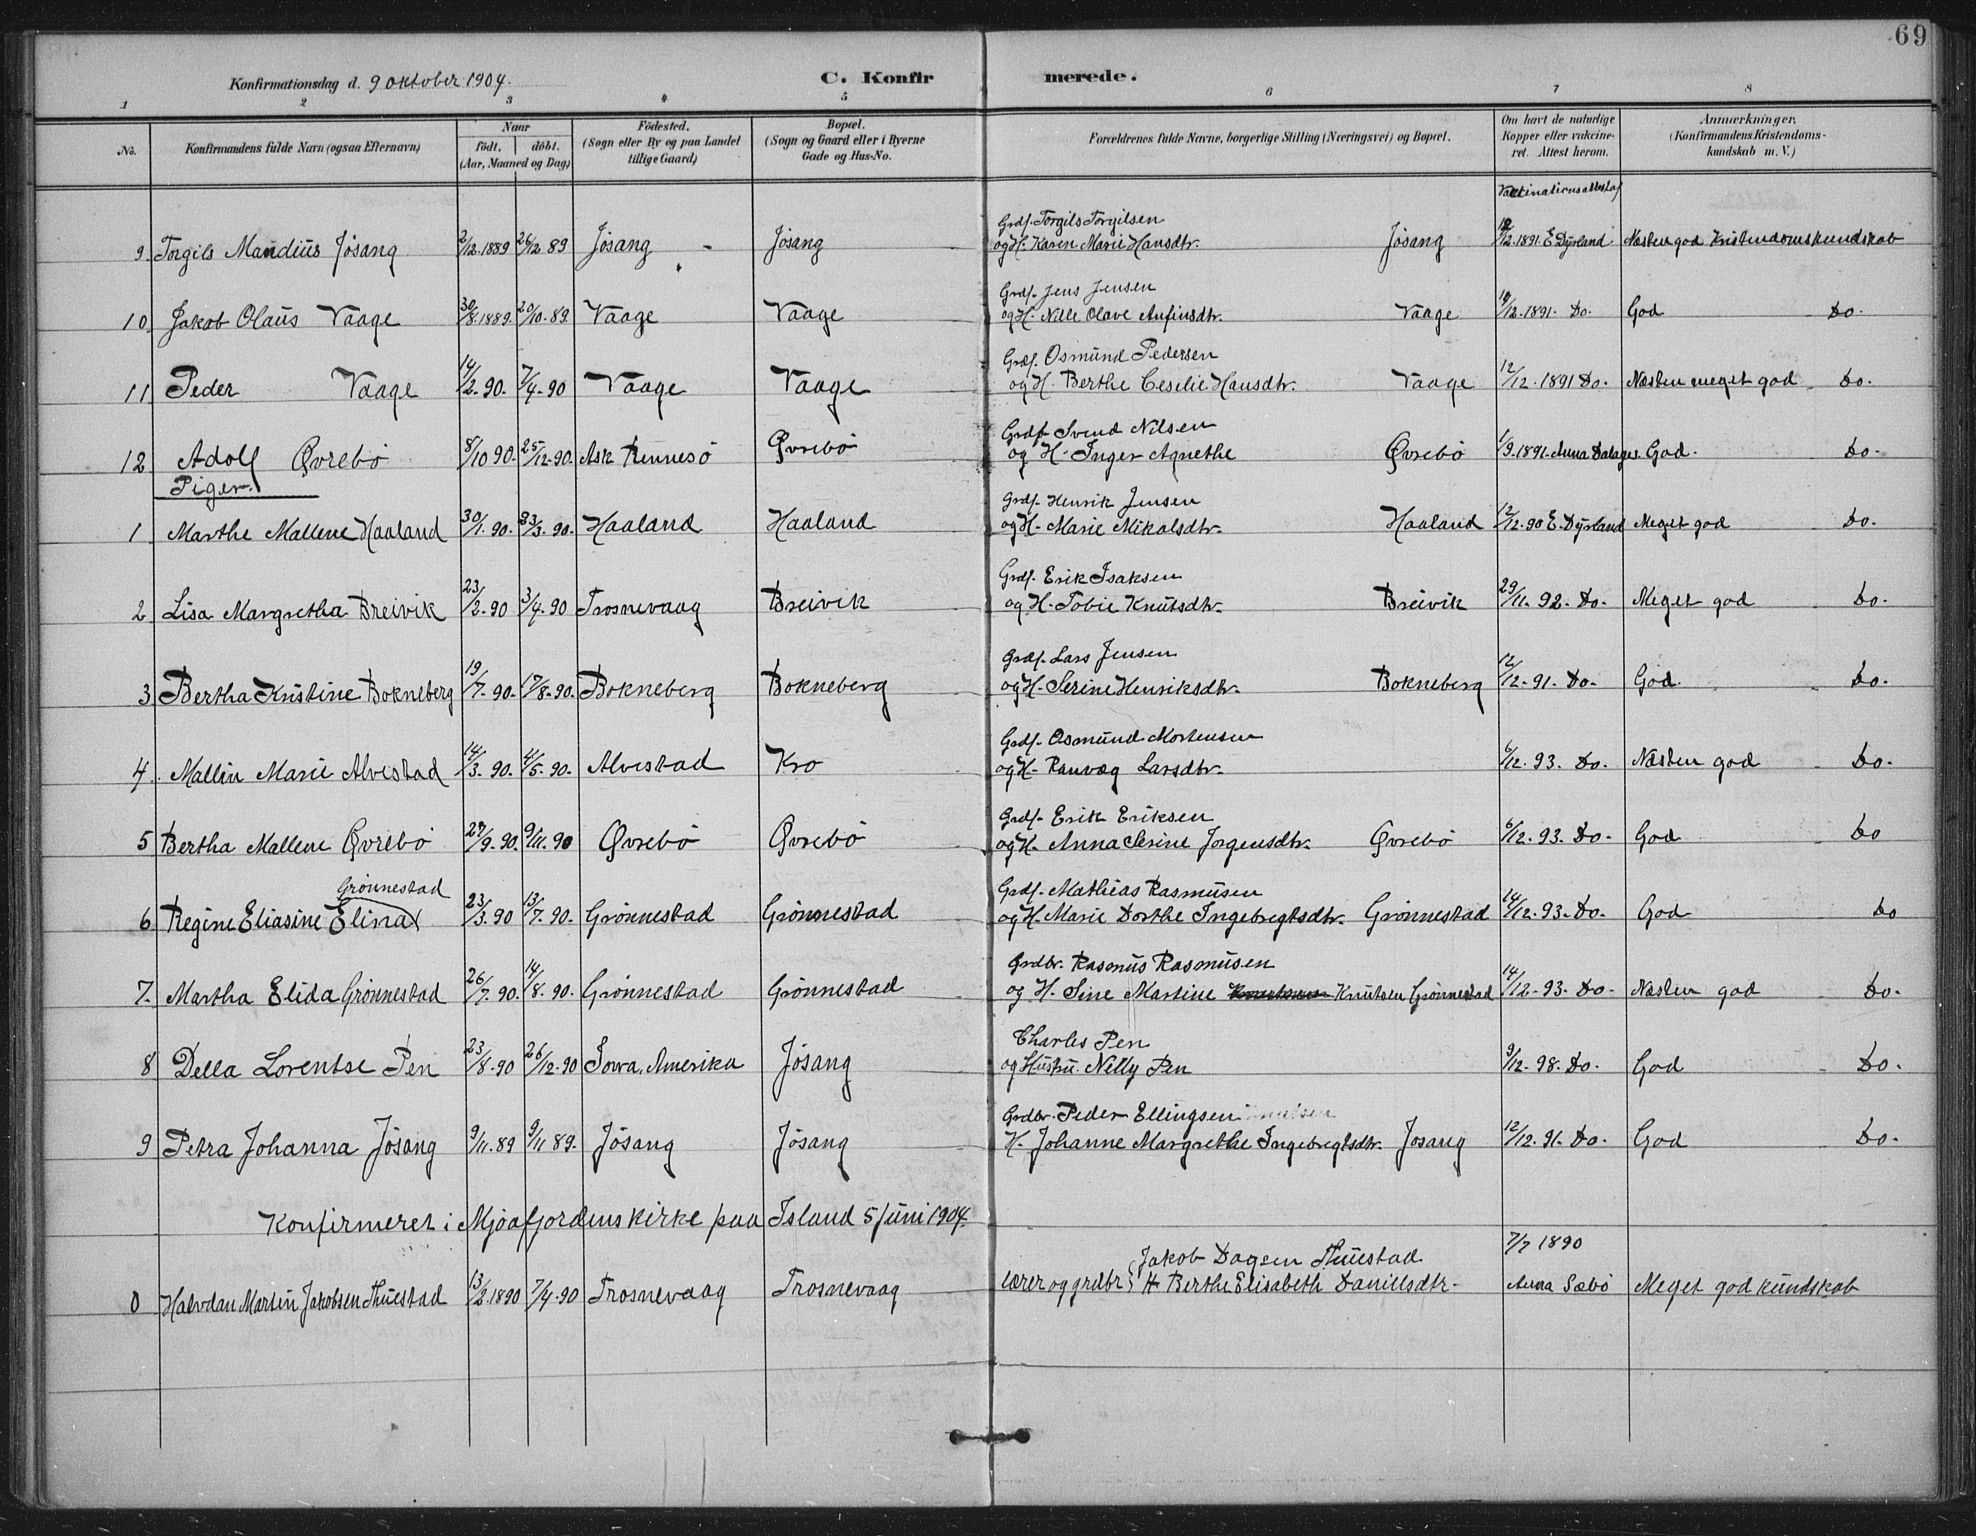 69
Konfirmationsdag d. 9 oktober 1904. C. Konfirmerede.
1 2 3 4 5 6 7 8
No. Konfirmandens fulde Navn (ogsaa Efternavn) Naar født. døbt. (Aar, Maaned og Dag) Fødested. (Sogn eller By og paa Landet tillige Gaard) Bopæl. (Sogn og Gaard eller i Byerne Gade og Hus-No. Forældrenes fulde Navne, borgerlige Stilling (Næringsvei) og Bopæl. Om havt de naturlige Kopper eller vakcineret. Attest herom. Anmerkninger. (Konfirmandens Kristendomskundskab m. V.)
Vaccinationsattest af
Grdf. Torgils Torgilsen
9. Torgils Mandius Jøsang 2/12.1889 26/12 89 Jøsang - Jøsang og H. Karen Marie Hansdtr. Jøsang 12/12.1891. E Dyrland Næsten god Kristendomskundskab
Grdf. Jens Jensen
10 Jakob Olaus Vaage 30/8.1889. 20/10.89. Vaage Vaage og H. Nille Olave Aufinsdtr. Vaage 12/12.1891. Do. God Do.
Grdf. Osmund Pedersen
11 Peder Vaage 14/2.90. 7/4.90 Vaage Vaage og H. Berthe Cesilie Hansdtr. Vaage 12/12.1891 Do. Næsten meget god Do.
Grdf. Svend Nilsen
12 Adolf Øvrebø 8/10 90. 25/12.90. Ask Rennesø Øvrebø og H. Inger Agnethe Øvrebø 1/9.1891. Anna Dalager God. Do.
Piger.
Grdf. Henrik Jensen
1 Marthe Mallene Haaland 30/1.90. 23/3.90. Haaland Haaland og H. Marie Mikalsdtr. Haaland 12/12.90 E. Dyrland Meget god Do.
Grdf. Erik Isaksen
2 Lisa Margretha Breivik 23/2.90 3/4.90 Trosnevaag Breivik og H. Tobie Knutsdtr. Breivik 29/11.92. Do. Meget god Do.
Grdf. Lars Jensen
3 Bertha Kristine Bokneberg 19/7.90. 17/8.90. Bokneberg Bokneberg og H. Serine Henriksdtr. Bokneberg 12/12.91. Do. God. Do.
Grdf. Osmund Mortensen
4. Mallin Marie Alvestad 14/3.90. 4/5.90. Alvestad Kro og H. Ranvæg Larsdtr. 6/12.93. Do. Næsten god Do.
Grdf. Erik Eriksen
5 Bertha Mallene Øvrebø 27/9.90. 9/11.90 Øvrebø Øvrebø og H. Anna Serine Jørgensdtr. Øvrebø 6/12.93. Do. God Do
Grønnestad Grdf. Mathias Rasmusen
6 Regine Eliasine Elina 23/3.90 13/7.90. Grønnestad Grønnestad og H. Marie Dorthe Ingebregtsdtr. Grønnestad 14/12.93. Do. God Do
Grdbr. Rasmus Rasmusen
7. Martha Elida Grønnestad 26/7.90. 14/8.90. Grønnestad Grønnestad og H. Sine Martine Knutsen Grønnestad 14/12.93. Do. Næsten god Do.
Charles Pen
8 Della Lorentse Pen 23/8.90 26/12.90 Iowa, Amerika Jøsang og Hustru Nelly Pen 9/12.98. Do. God Do.
Grdbr. Peder Ellingsen
9 Petra Johanna Jøsang 9/11.89 9/11 89. Jøsang Jøsang H. Johanne Margrethe Ingebregtsdtr. Jøsang 12/12.91. Do. God Do.
Konfirmeret i Mjoafjordens kirke paa Island 5 Juni 1904.
Jakob Dagsen Thuestad 7/7 1890
0 Halvdan Martin Jakobsen Thuestad 13/2.1890 7/4.90 Trosnevaag Trosnevaag lærer og grdbr H Berthe Elisabeth Danielsdtr. Anna Sæbø Meget god kundskab